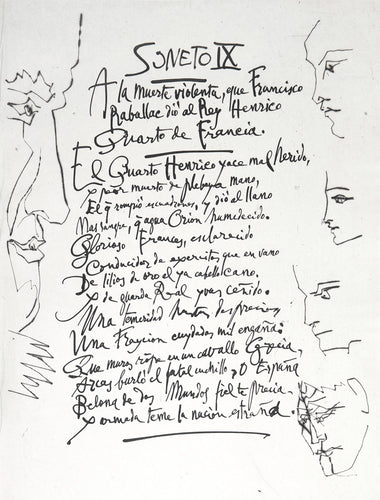 SONETO IX
A la muerte violenta, que Francisco
Raballac dió al Rey Henrico
Quarto de Francia.
El Quarto Henrico yace mal herido,
y peor muerto de Plebeya mano,
El q̄ rompió escuadrones, y dió al llano
Mas sangre, q̄ agua Orion humedecido.
Glorioso Frances, esclarecido
Conducidor de exercitos que en vano
De lilios de oro el ya cabello cano,
y de guarda Real yva ceñido.
Una temeridad hastas desprecia,
Una Traycion cuydados mil engaña:
Que muros rompe en un cavallo Grecia,
Arcas burló el fatal cuchillo, O España
Belona de dos Mundos fiel te precia
y armada teme la nacion estraña.